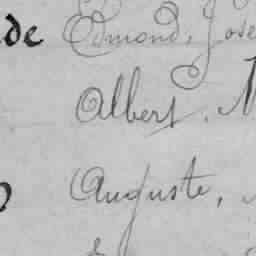 de Edmond, Jose
Albert, M
Auguste,